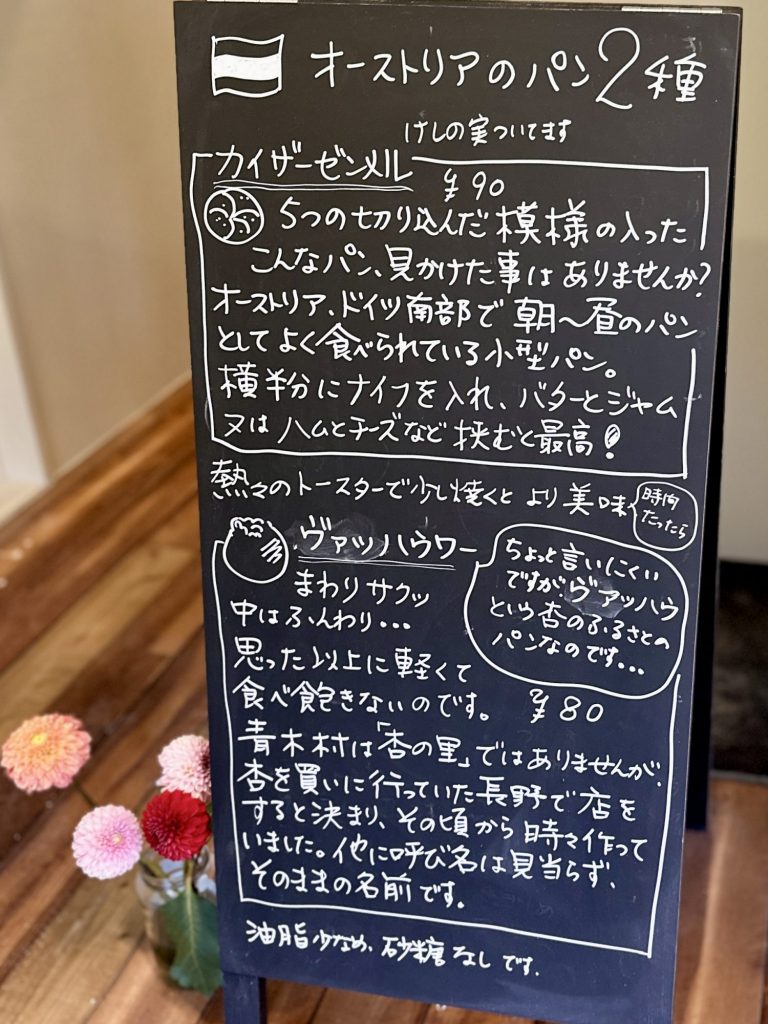 オーストリアのパン2種
けしの実ついてます
カイザーゼンメル
¥90
5つの切り込んだ模様の入った
こんなパン、見かけた事はありませんか?
オーストリア、ドイツ南部で朝〜昼のパン
としてよく食べられている小型パン。
横半分にナイフを入れ、バターとジャム
又はハムとチーズなど挟むと最高!
熱々のトースターで少し焼くとより美味
時間
たったら
ヴァッハウワー
まわりサクッ
中はふんわり...
思った以上に軽くて
食べ飽きないのです。
¥80
ちょっと言いにくい
ですが、ヴァッハウ
という杏のふるさとの
パンなのです...
青木村は「杏の里」ではありませんが、
杏を買いに行っていた長野で店を
すると決まり、その頃から時々作って
いました。他に呼び名は見当らず、
そのままの名前です。
油脂少なめ、砂糖なしです.